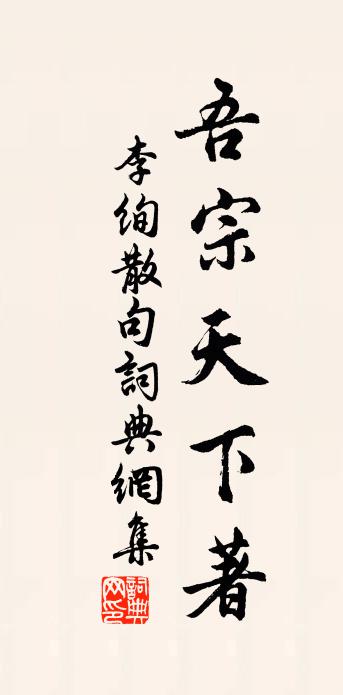 吾宗天下著
李絢散句詞典網集
詞典網印